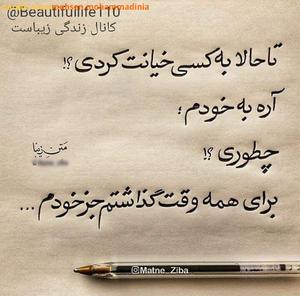 mohsen.mohammadinia
@Beautifullife110
کانال زندگی زیباست
تا حالا به کسی خیانت کردی ؟!
آره به خودم ؛
چطوری ؟!
متن زیبا
برای همه وقت گذاشتم جز خودم ...
@Matne_Ziba